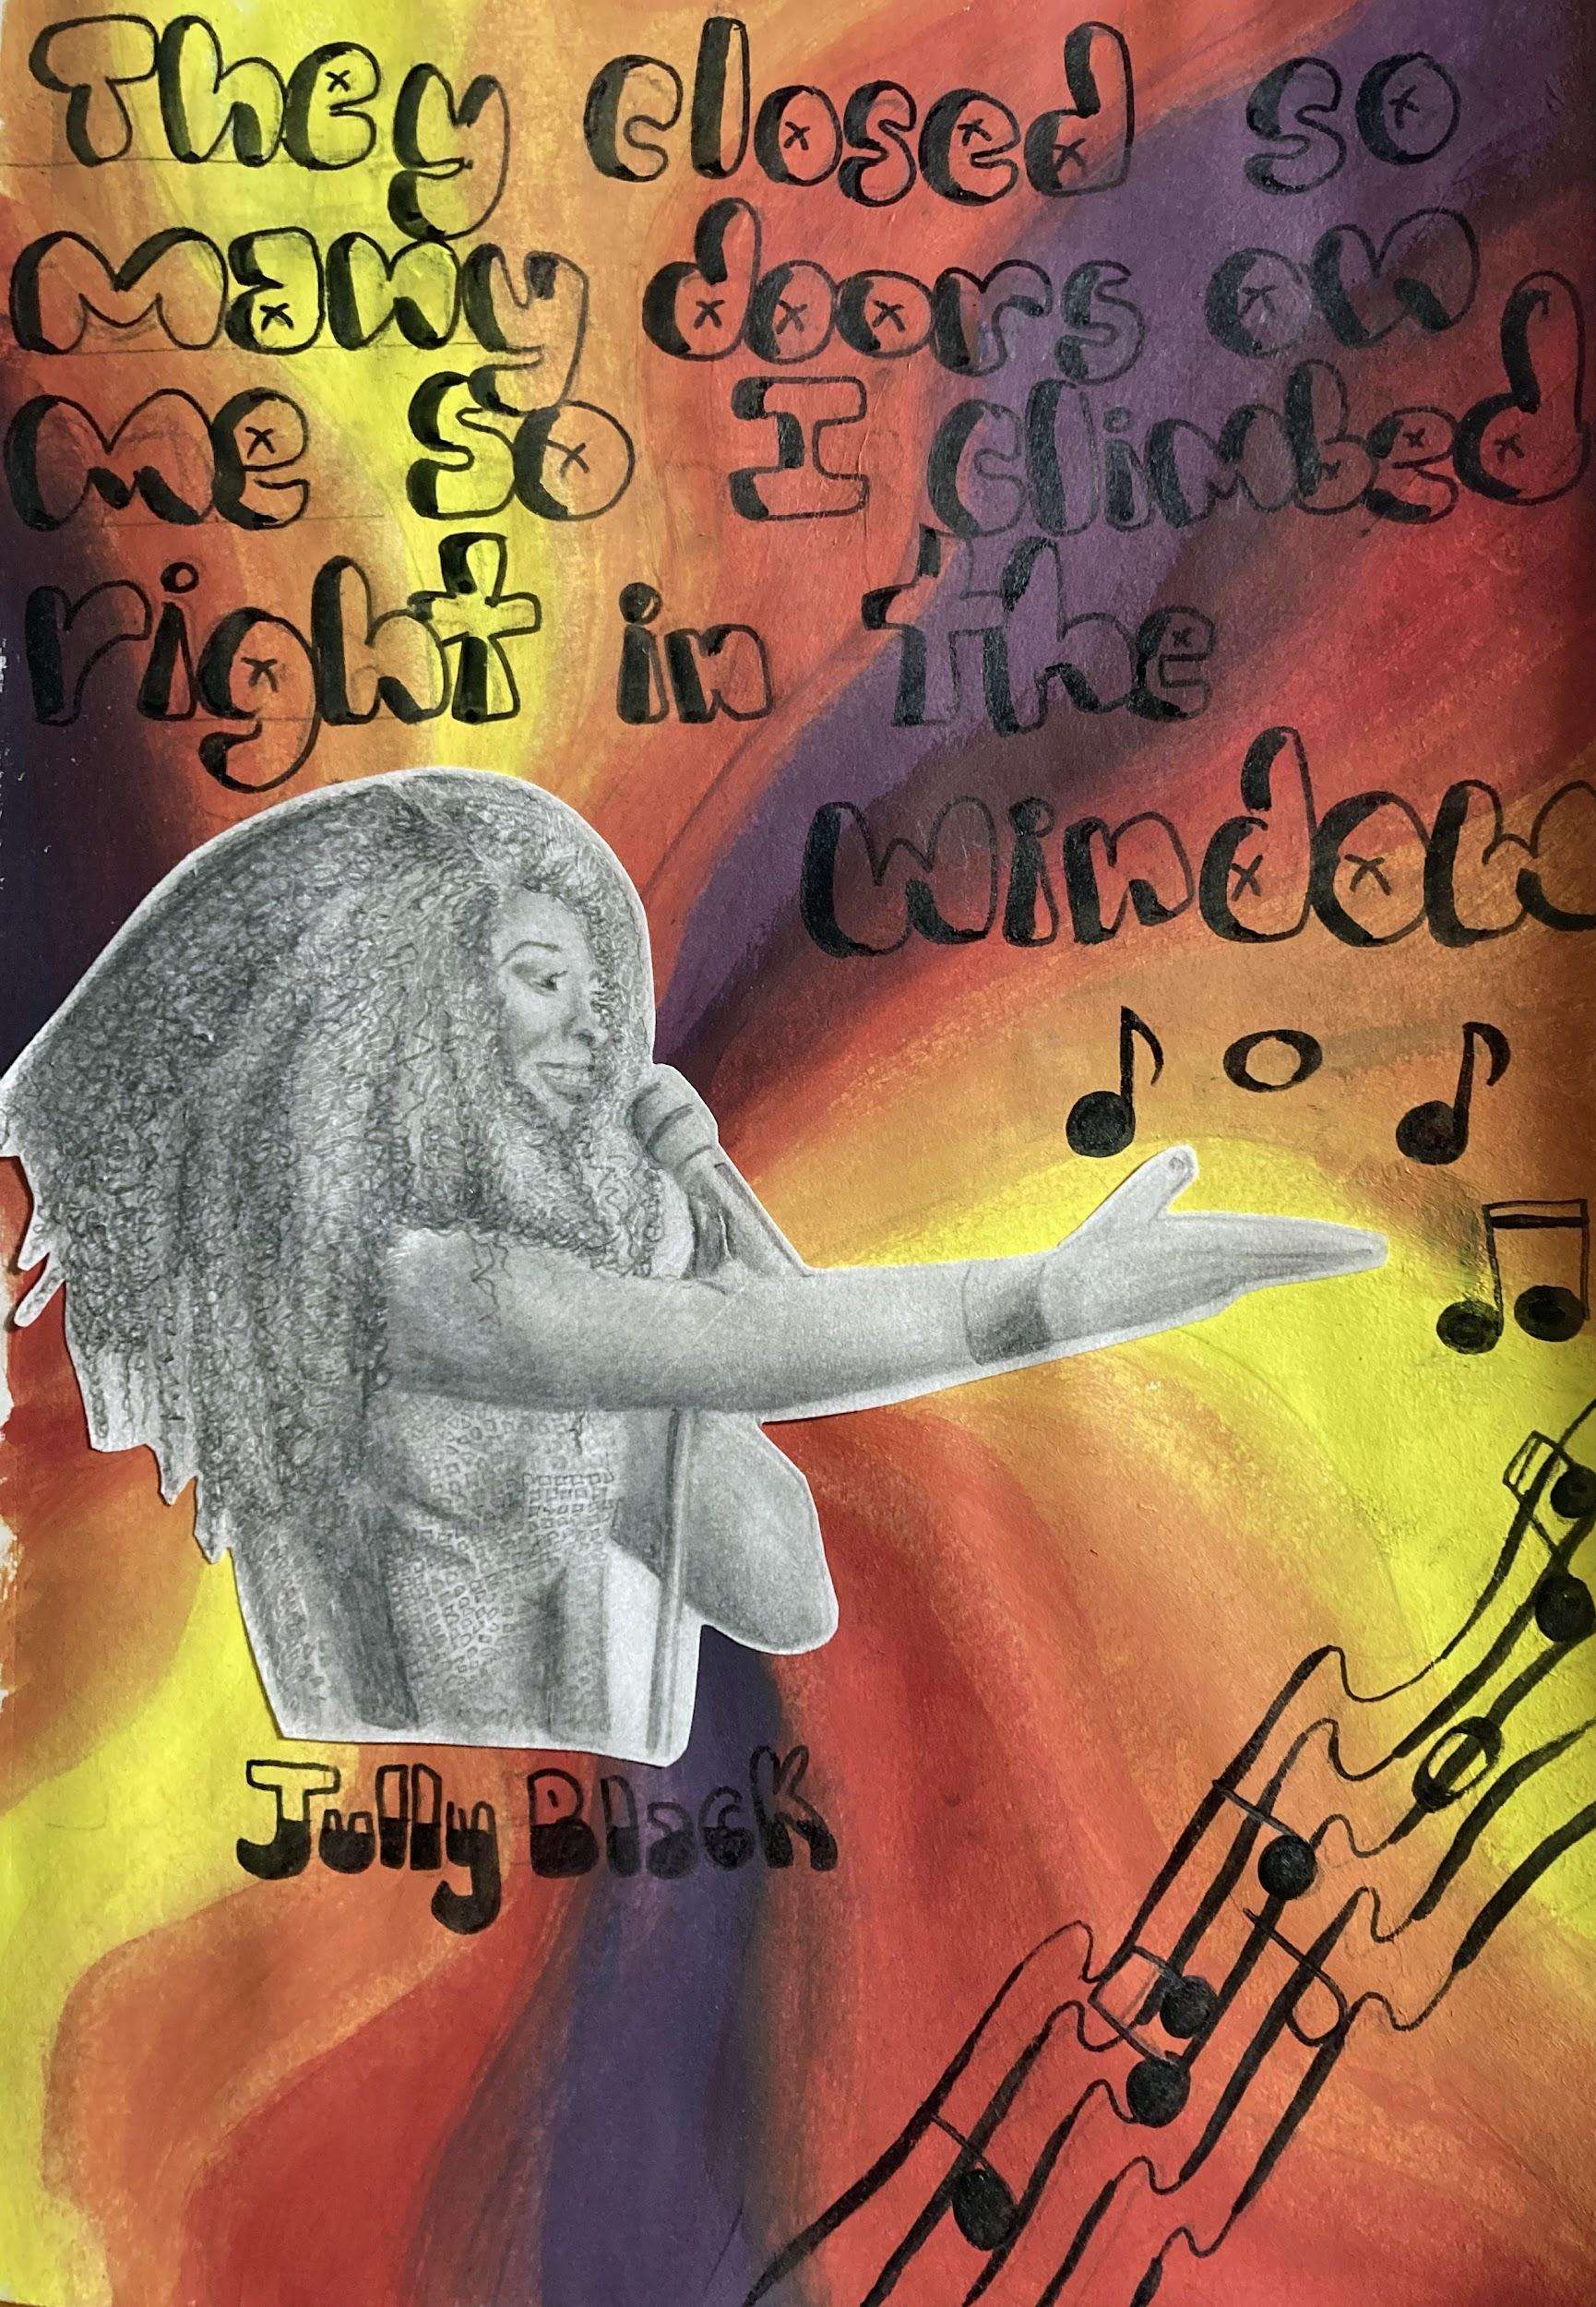 They closed so
many doors on
me so I climbed
right in the
window
Jully Black